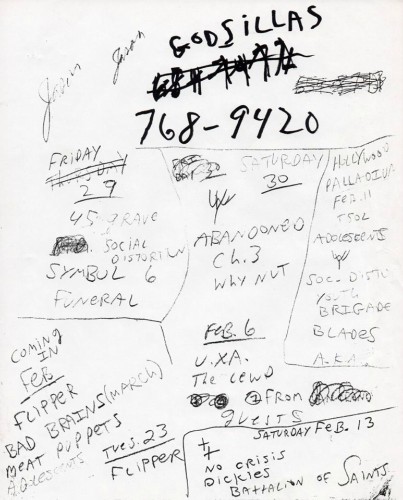 GODSILLAS
Jason Jason
768-9420
FRIDAY
29
45-grave
SOCIAL
DISTORTION
SYMBUL 6
FUNERAL
SATURDAY
30
w/
ABANDONED
Ch.3
Why NUT
HOLLYWOOD
PALLADIUM
FEB.11
TSOL
ADOLESCENTS
w/
SOC. DISTO
Youth
BRIGADE
BLADES
A.K.A.
FEB. 6
U.X.A.
The LEWD
FROM
guests
COMING
IN
FEB
FLIPPER
BAD BRAINS (MARCH)
MEAT PUPPETS
ADOLESCENTS
TUES. 23
FLIPPER
SATURDAY FEB. 13
NO CRISIS
DICKIES
BATTALION OF SAINTS